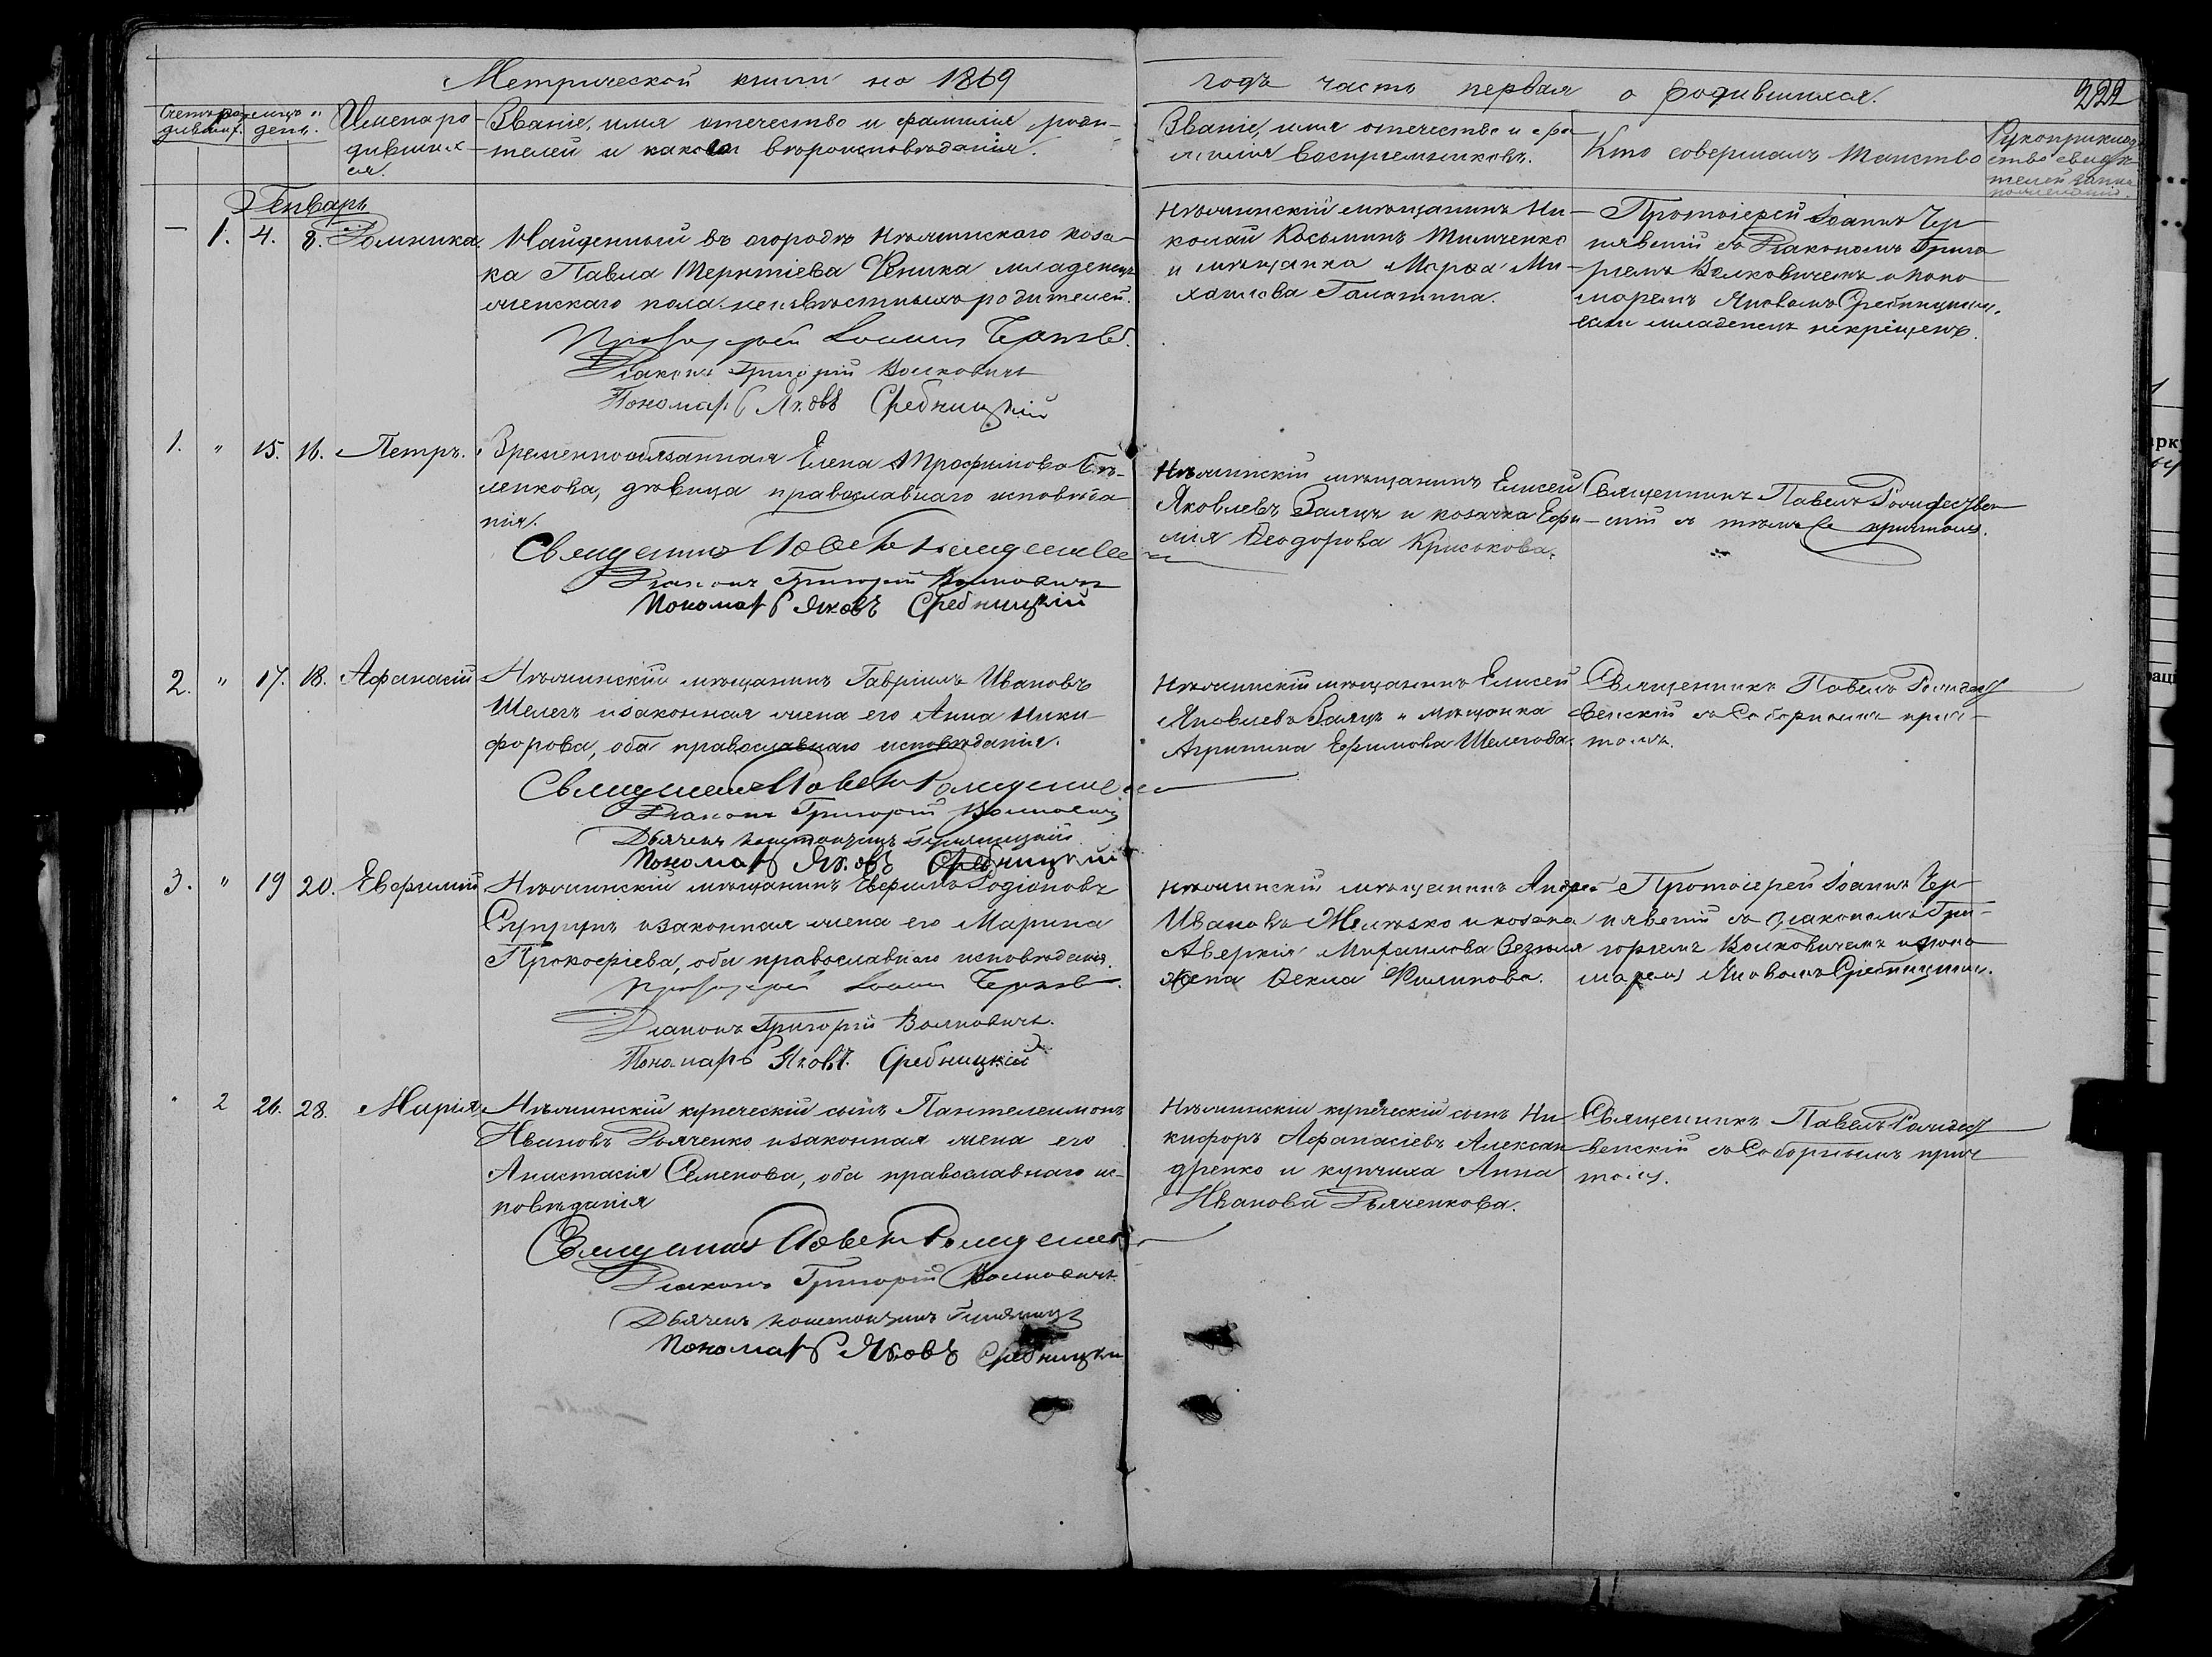 Метрической книги на 1869
годъ часть первая о родившихся.
222
Счетъ родившихъ.
Мѣсяцъ и день.
Имена родившихся.
Званіе, имя отечество и фамилія роди-
телей и какого вѣроисповѣданія.
Званіе, имя отечество и фа-
милія воспріемниковъ.
Кто совершалъ таинство
Рукоприклад
ство свидѣ
телей
Генварь
1. 4. 8. Домникія.
Найденный въ огородѣ Нѣжинскаго коза-
ка Павла Терентіева младенецъ
женскаго пола неизвѣстныхъ родителей.
Протоіерей Іоаннъ
Діаконъ Григорій Волковичъ
Пономарь Яковъ Сребницкій
Нѣжинскій мѣщанинъ Ни-
колай Косьминъ Тимченко
и мѣщанка Марѳа Ми-
хайлова Галатина.
Протоіерей Іоаннъ Чер
нявскій съ Діакономъ Григо
ріемъ Волковичемъ и поно
маремъ Яковомъ Сребницкимъ,
младенецъ
1. " 15. 16. Петръ.
Временнообязанная Елена Трофимова Бѣ-
ленкова, дѣвица православнаго исповѣда
нія.
Священникъ Павелъ Рождественскій
Діаконъ Григорій Волковичъ
Пономарь Яковъ Сребницкій
Нѣжинскій мѣщанинъ Елисей
Яковлевъ Заяцъ и козачка Ефи-
мія Ѳеодорова Криськова.
Священникъ Павелъ Рождествен
скій съ тѣмъ же причтомъ.
2. " 17. 18. Афанасій
Нѣжинскій мѣщанинъ Гавріилъ Ивановъ
Шелегъ и законная жена его Анна Ники-
форова, оба православнаго исповѣданія.
Священникъ Павелъ Рождественскій
Діаконъ Григорій Волковичъ
Дьячекъ Константинъ
Пономарь Яковъ Сребницкій
Нѣжинскій мѣщанинъ Елисей
Яковлевъ Заяцъ и мѣщанка
Агрипина Ефимова Шелегова.
Священникъ Павелъ Рождест
венскій съ Соборнымъ прич-
томъ.
3. " 19 20. Евфимій
Нѣжинскій мѣщанинъ Евфимъ Родіоновъ
и законная жена его Марина
Прокофіева, оба православнаго исповѣданія.
Протоіерей Іоаннъ
Діаконъ Григорій Волковичъ.
Пономарь Яковъ Сребницкій
Нѣжинскій мѣщанинъ Андрей
Ивановъ Желѣзко и козака
Аверкія Михаилова
жена Ѳекла Филипова.
Протоіерей Іоаннъ Чер
нявскій съ діакономъ Гри-
горіемъ Волковичемъ и поно
маремъ Яковомъ Сребницкимъ.
" 2 26. 28. Марія
Нѣжинскій купеческій сынъ Пантелеимонъ
Ивановъ Дьяченко и законная жена его
Анастасія Семенова, оба православнаго ис-
повѣданія
Священникъ Павелъ Рождественскій
Діаконъ Григорій Волковичъ.
Дьячекъ Константинъ
Пономарь Яковъ Сребницкій
Нѣжинскій купеческій сынъ Ни
кифоръ Афанасіевъ Алексан
дренко и купчиха Анна
Иванова Дьяченкова.
Священникъ Павелъ Рождест
венскій съ Соборнымъ прич
томъ.